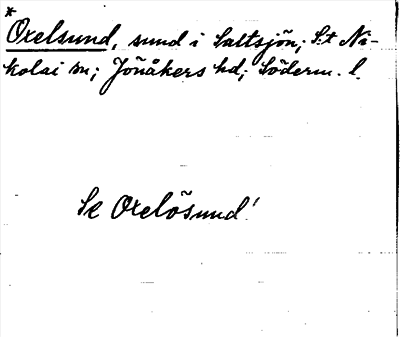 *
Oxelsund, sund i Saltsjön; S:t Ni-
kolai sn; Jönåkers hd; Söderm. l.
Se Oxelösund!